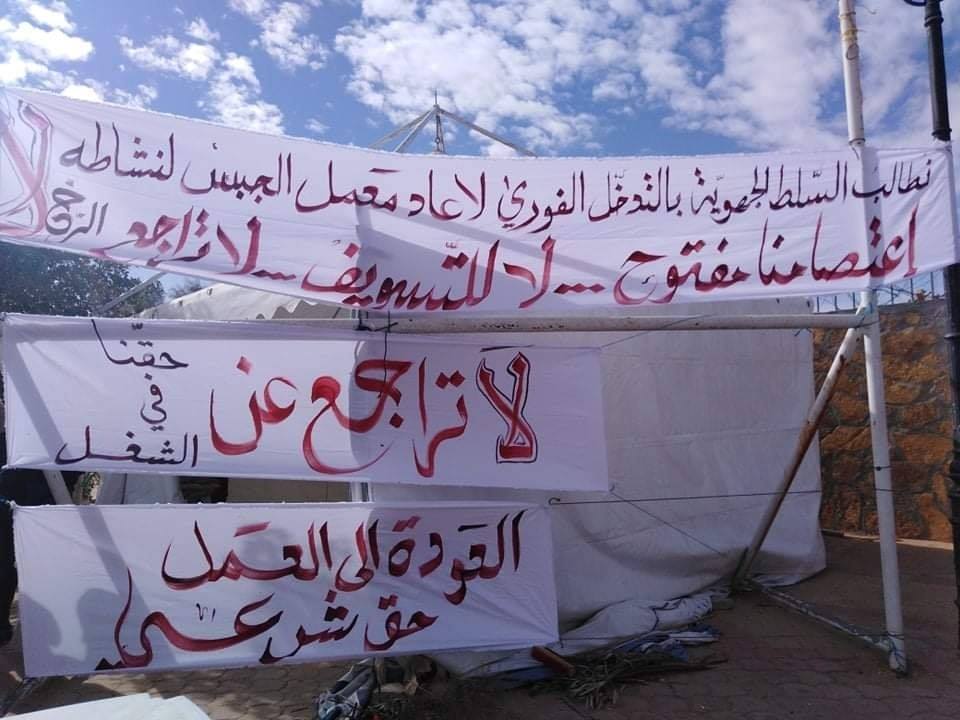 نطالب السّلط الجهويّة بالتدخّل الفوري لاعاد معمل الجبس لنشاطه
إعتصامنا مفتوح ... لا للتّسويف ... لا تراجع الرّخ لا
لَا تراجع عن
حقّنا
في
الشغل
العَودة الى العمَل
حق شرعي